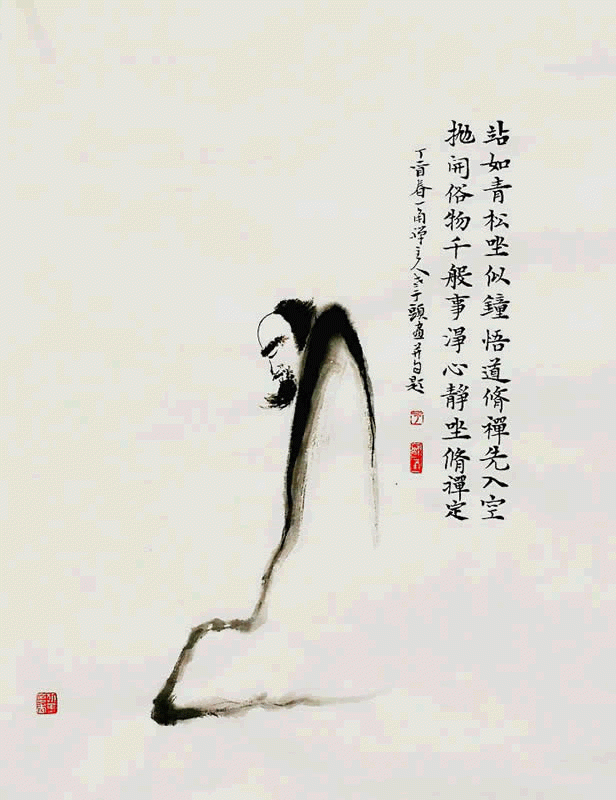 站如青松坐似鐘悟道脩禪先入空
抛開俗物千般事淨心靜坐脩禪定
丁酉春一角禪主人老于頭畫并自題